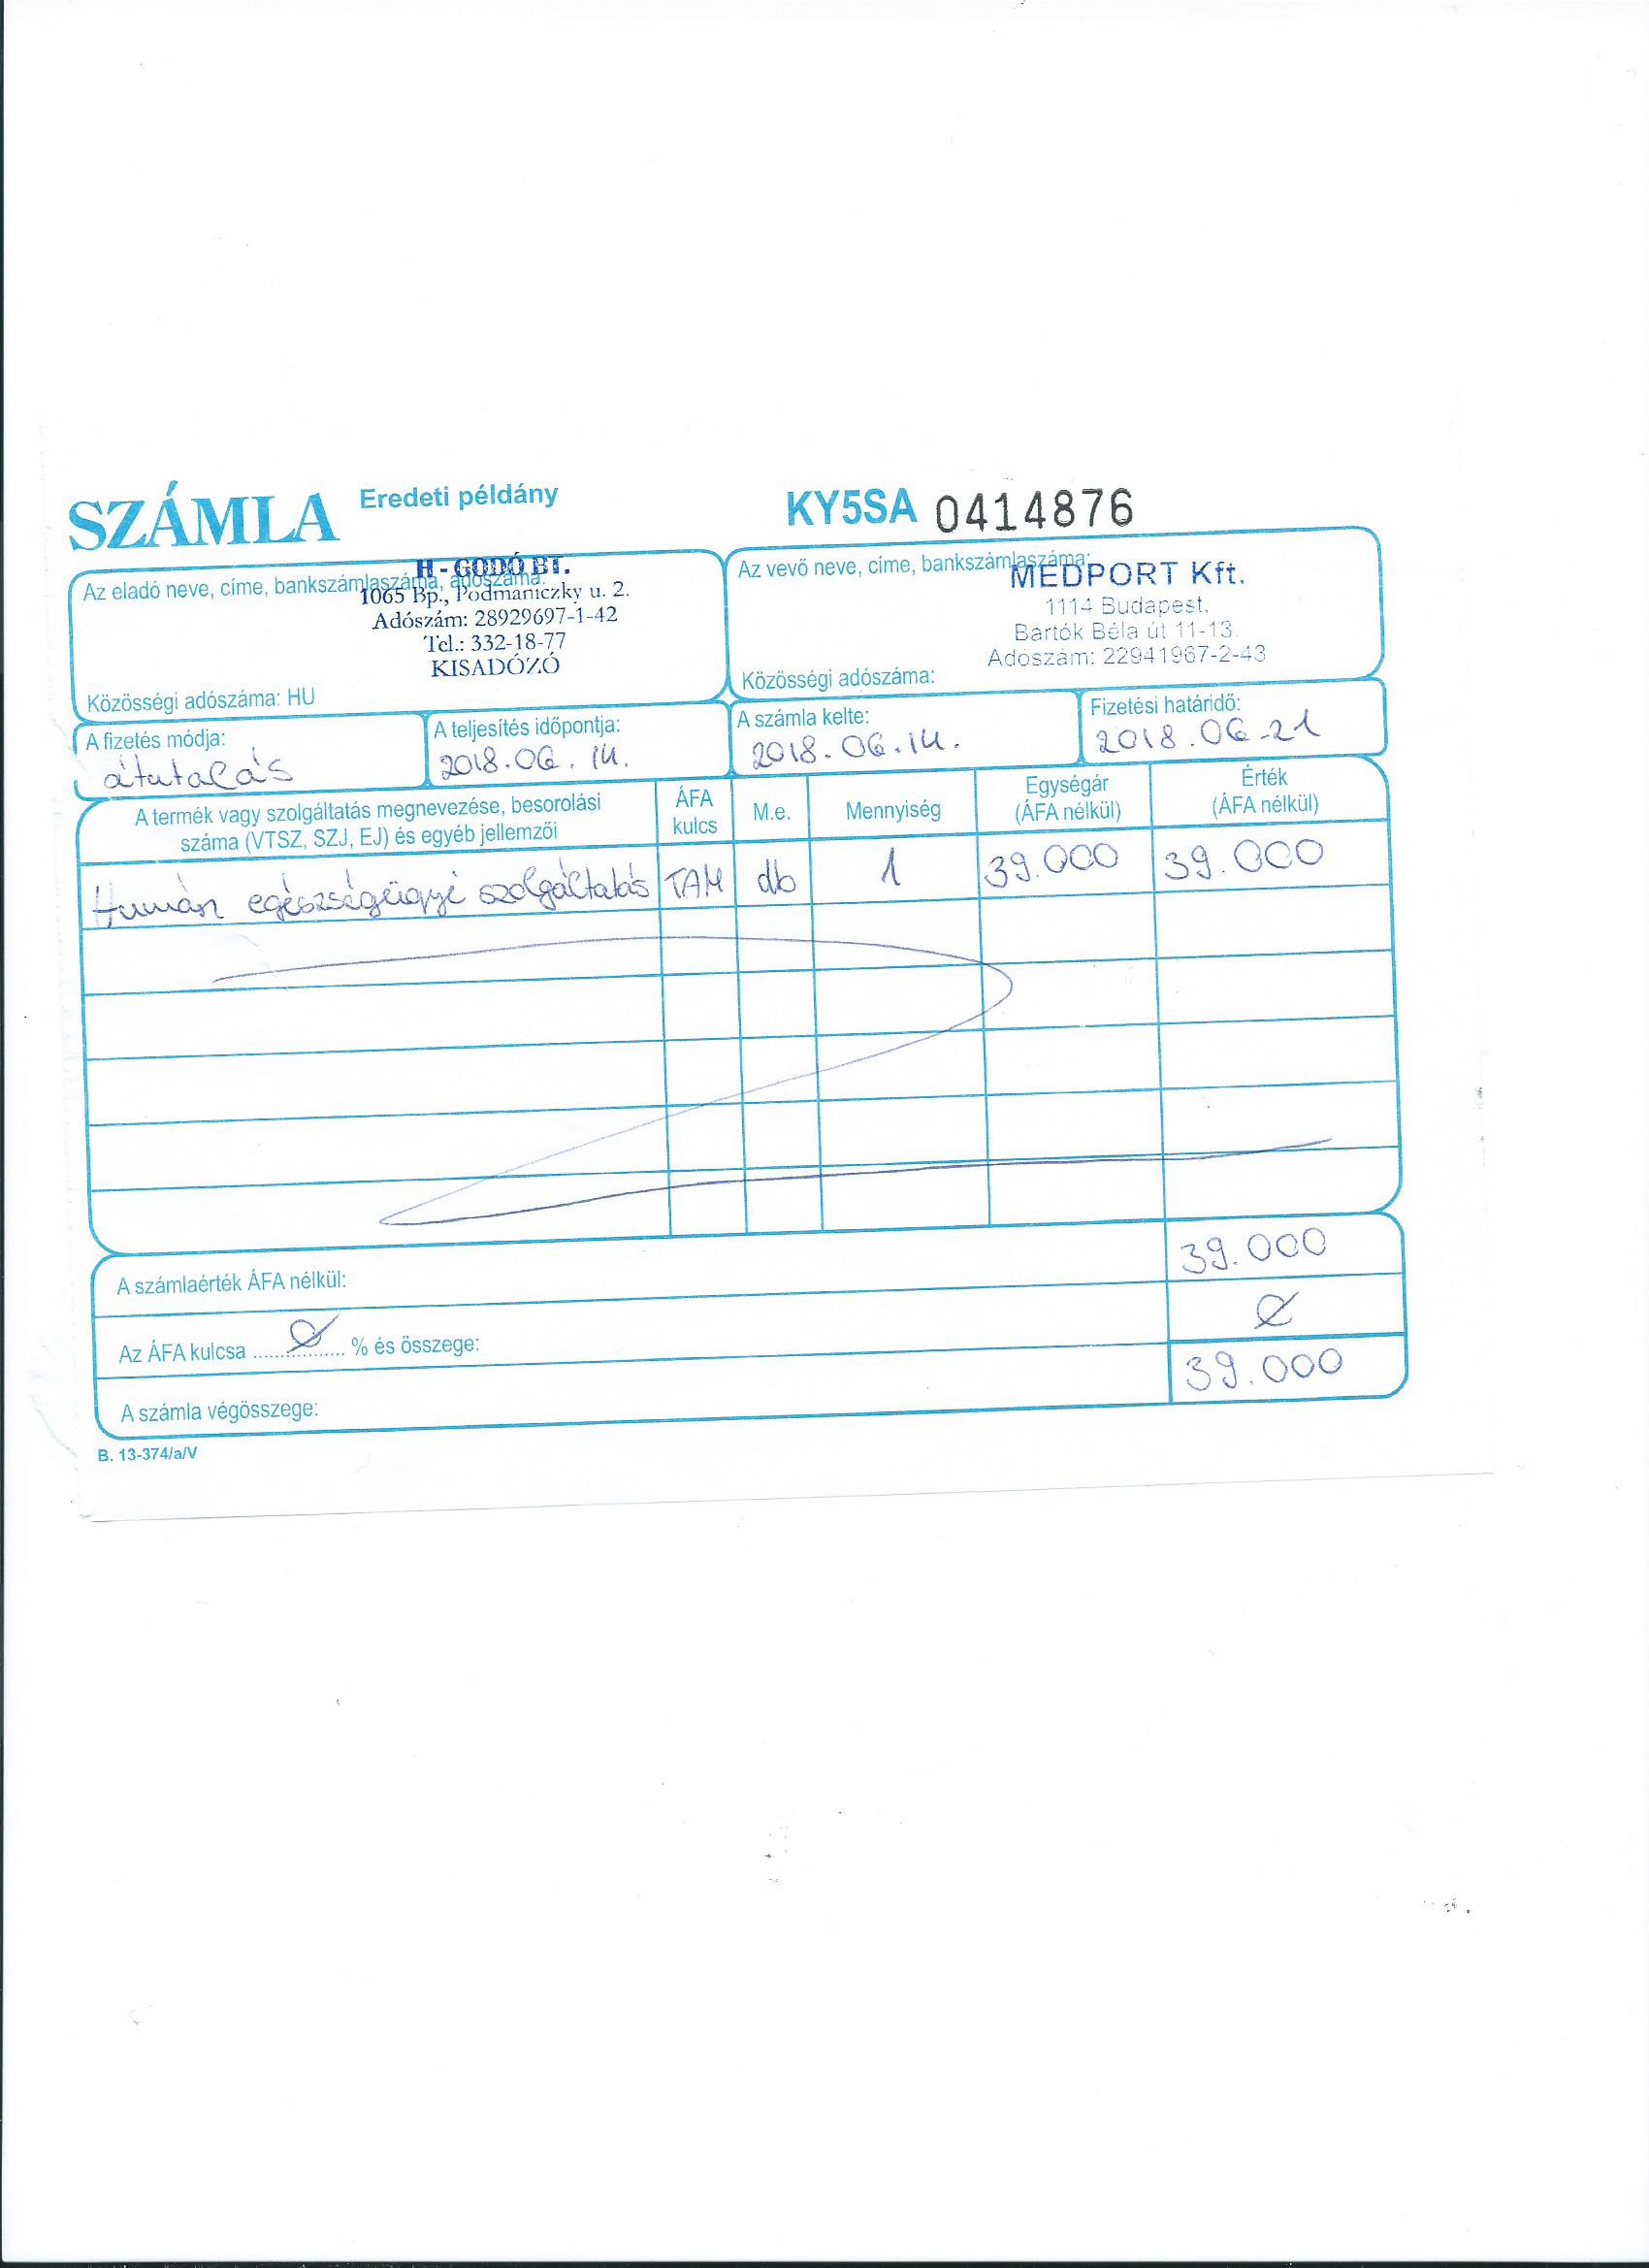 SZÁMLA Eredeti példány KY5SA 0414876
Az eladó neve, címe, bankszámlaszáma, adószáma:
H - GODÓ BT.
1065 Bp., Podmaniczky u. 2.
Adószám: 28929697-1-42
Tel.: 332-18-77
KISADÓZÓ
Közösségi adószáma: HU
Az vevő neve, címe, bankszámlaszáma:
MEDPORT Kft.
1114 Budapest,
Bartók Béla út 11-13.
Adószám: 22941967-2-43
Közösségi adószáma:
A fizetés módja:
átutalás
A teljesítés időpontja:
2018.06.14.
A számla kelte:
2018.06.14.
Fizetési határidő:
2018.06-21
A termék vagy szolgáltatás megnevezése, besorolási
száma (VTSZ, SZJ, EJ) és egyéb jellemzői
ÁFA
kulcs
M.e.
Mennyiség
Egységár
(ÁFA nélkül)
Érték
(ÁFA nélkül)
Humán egészségügyi szolgáltatás TAM db 1 39.000 39.000
A számlaérték ÁFA nélkül: 39.000
Az ÁFA kulcsa ..... Ø ..... % és összege: Ø
A számla végösszege: 39.000
B. 13-374/a/V